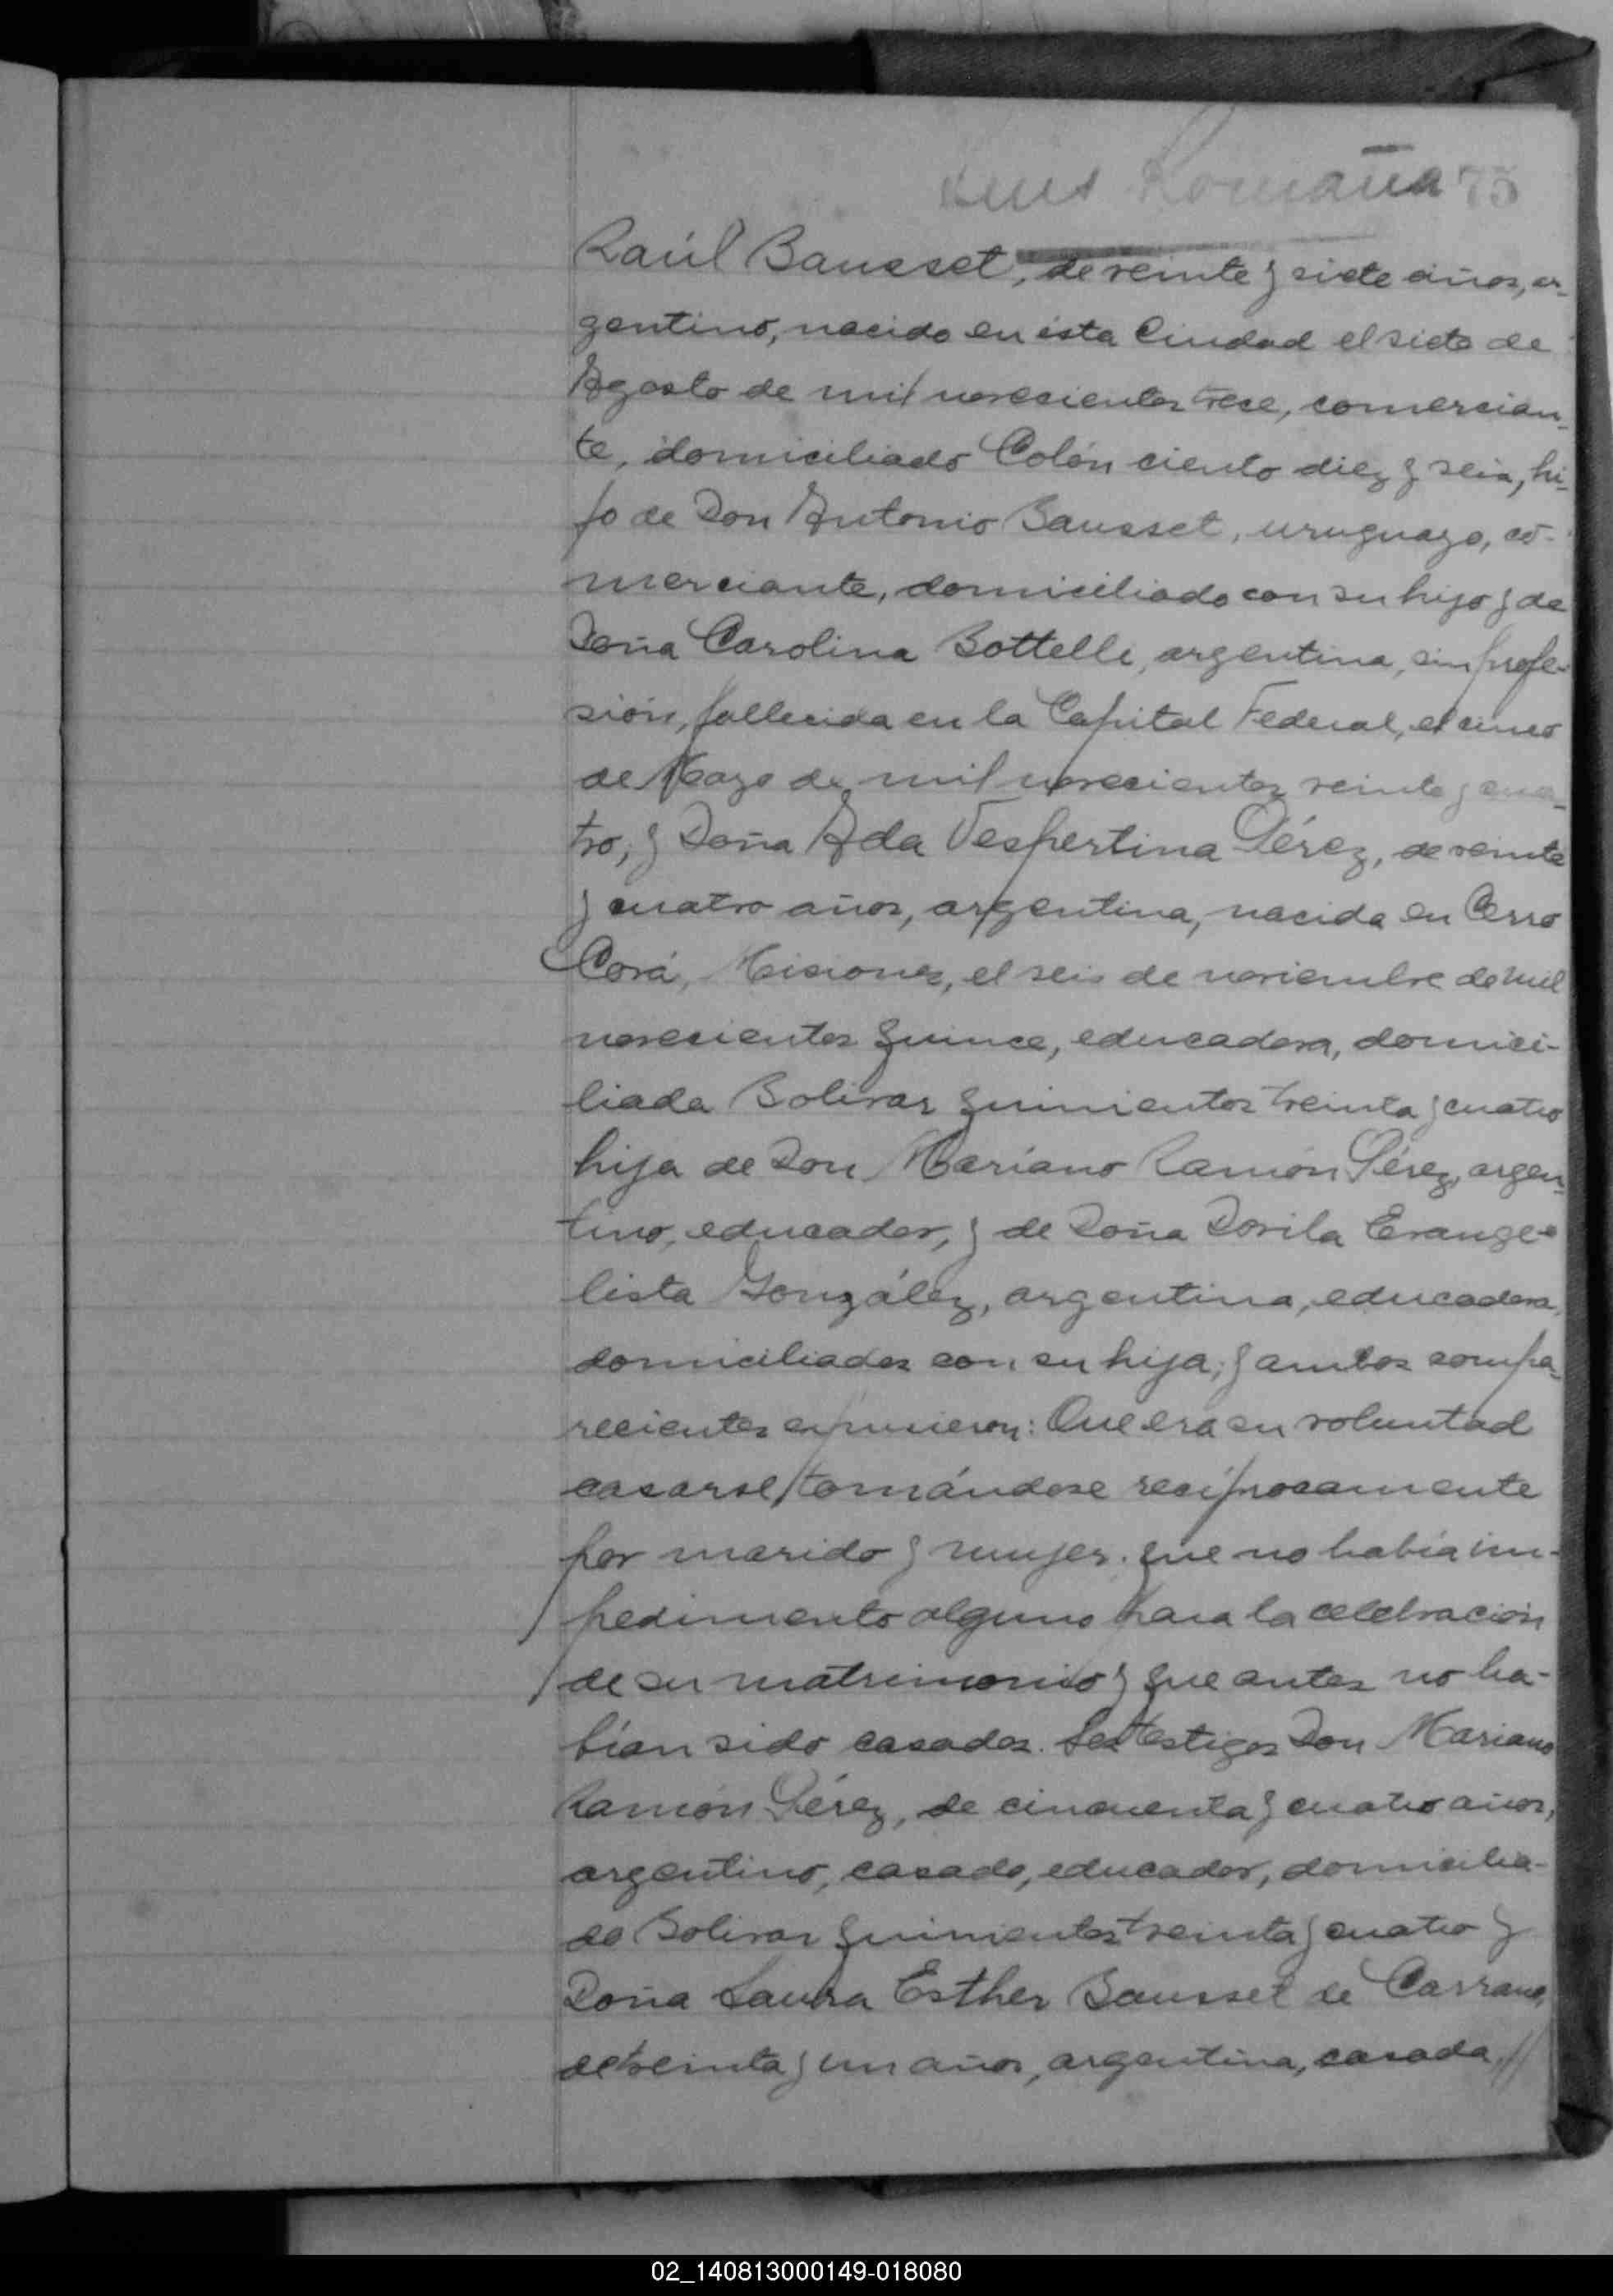 Romaña 75
Raúl Bausset, de veinte y siete años, ar-
gentino, nacido en ésta Ciudad el siete de
Agosto de mil novecientos trece, comercian-
te, domiciliado Colón ciento diez y seis, hi-
jo de Don Antonio Bausset, uruguayo, co-
merciante, domiciliado con su hijo y de
Doña Carolina Bottelli, argentina, sin profe-
sión, fallecida en la Capital Federal, el cinco
de Mayo de mil novecientos veinte y cua-
tro, y Doña Ada Vespertina Pérez, de veinte
y cuatro años, argentina, nacida en Cerro
Corá, Misiones, el seis de noviembre de mil
novecientos quince, educadora, domici-
liada Bolivar quinientos treinta y cuatro
hija de Don Mariano Ramón Pérez, argen-
tino, educador, y de Doña Dorila Evange-
lista González, argentina, educadora,
domiciliados con su hija; y ambos compa-
recientes expusieron: Que era su voluntad
casarse, tomándose recíprocamente
por marido y mujer. que no había im-
pedimento alguno para la celebración
de su matrimonio y que antes no ha-
bían sido casados. Los testigos Don Mariano
Ramón Pérez, de cincuenta y cuatro años,
argentino, casado, educador, domicilia-
do Bolivar quinientos treinta y cuatro y
Doña Laura Esther Bausset de Carrano,
de treinta y un años, argentina, casada,//
02_140813000149-018080